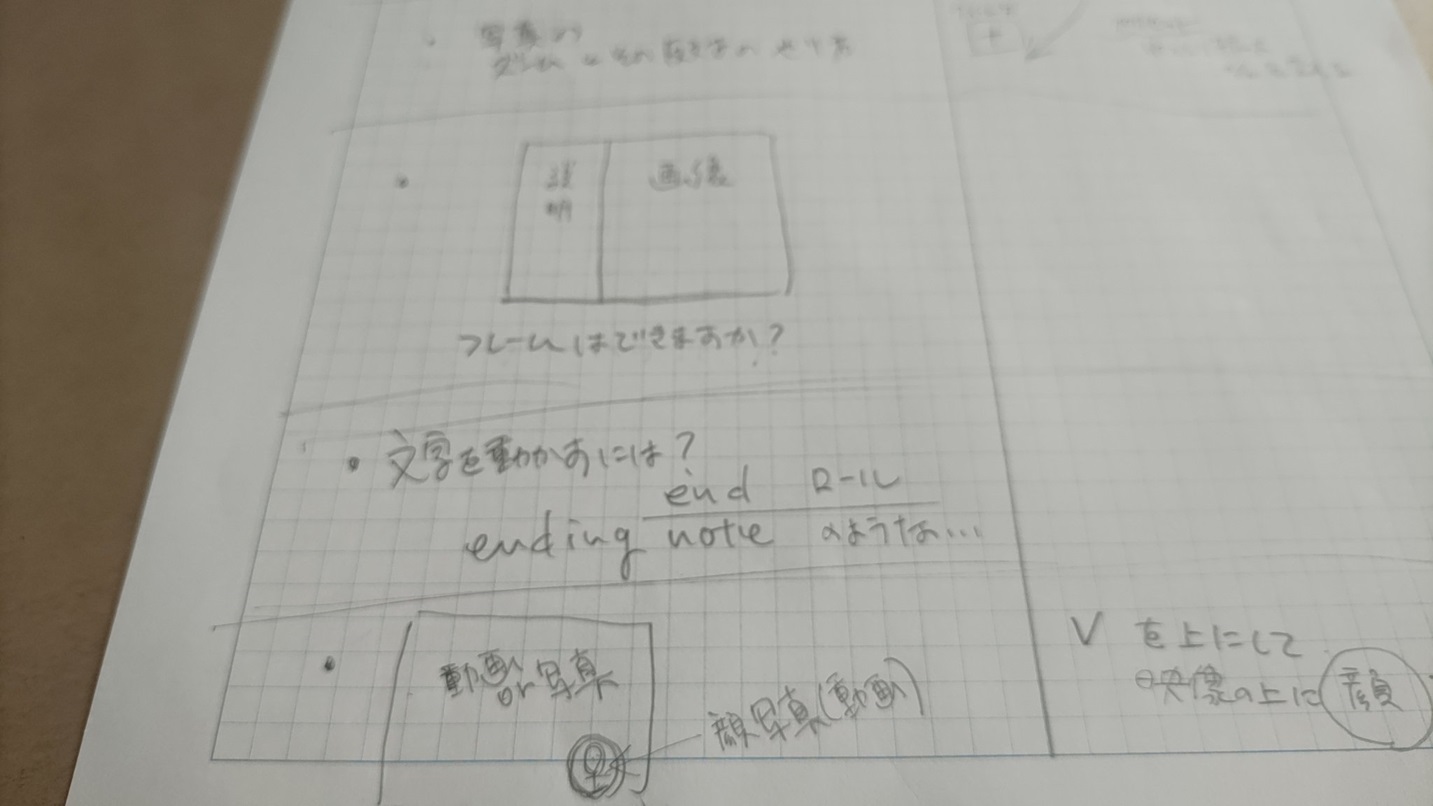 写真の
説
明
画像
フレームはできますか?
・文字を動かすには?
end ロール
ending note のような...
動画
or 写真
顔写真(動画)
V を上にして
映像の上に 顔